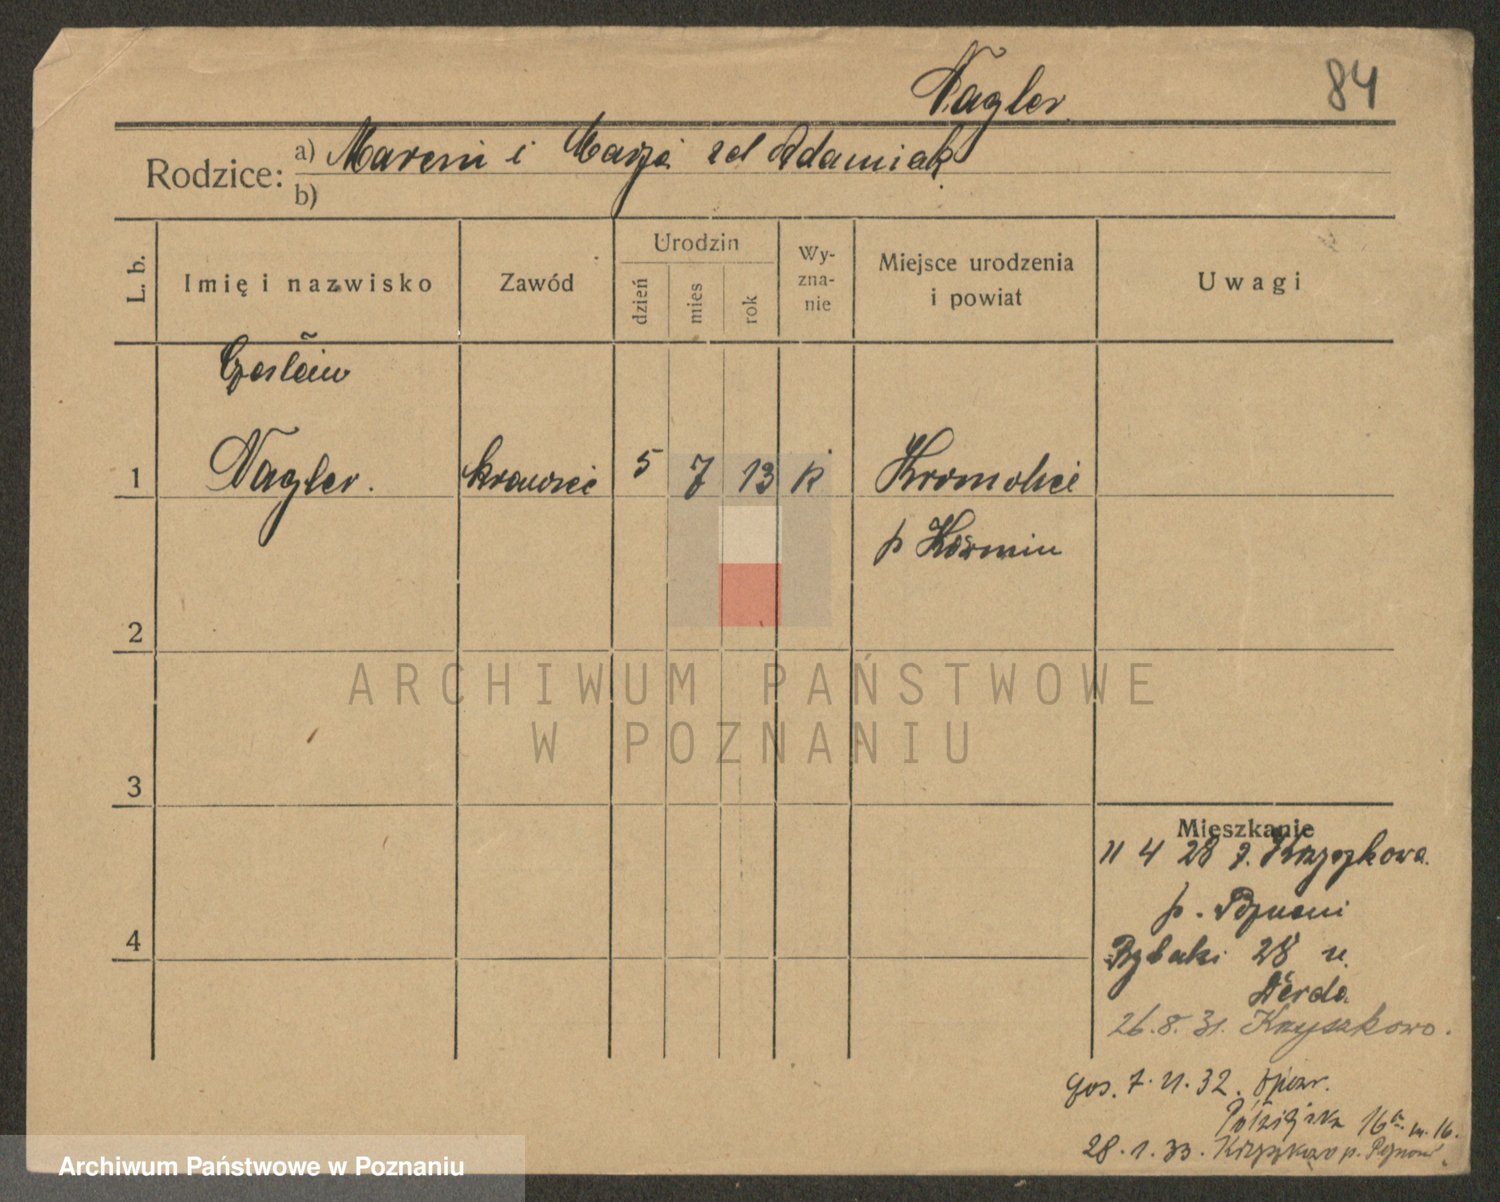 Nagler
84
Rodzice:
a) Marcin i Marja zd Adamiak
b)
L. b.
Imię i nazwisko
Zawód
Urodzin
dzień
mies
rok
Wy-
zna-
nie
Miejsce urodzenia
i powiat
Uwagi
Czesław
1 Nagler. krawiec 5 7 13 k Kromolice
p Koźmin
2
3
4
Mieszkanie
11 4 28 z Krzyszkowa
p. Poznań
Rybaki 28 u.
26.8.31. Krzyszkowo.
gos. 7.11.32.
16a m. 16.
28.1.33. Krzyszkowo p. Poznań
ARCHIWUM PAŃSTWOWE
W POZNANIU
Archiwum Państwowe w Poznaniu